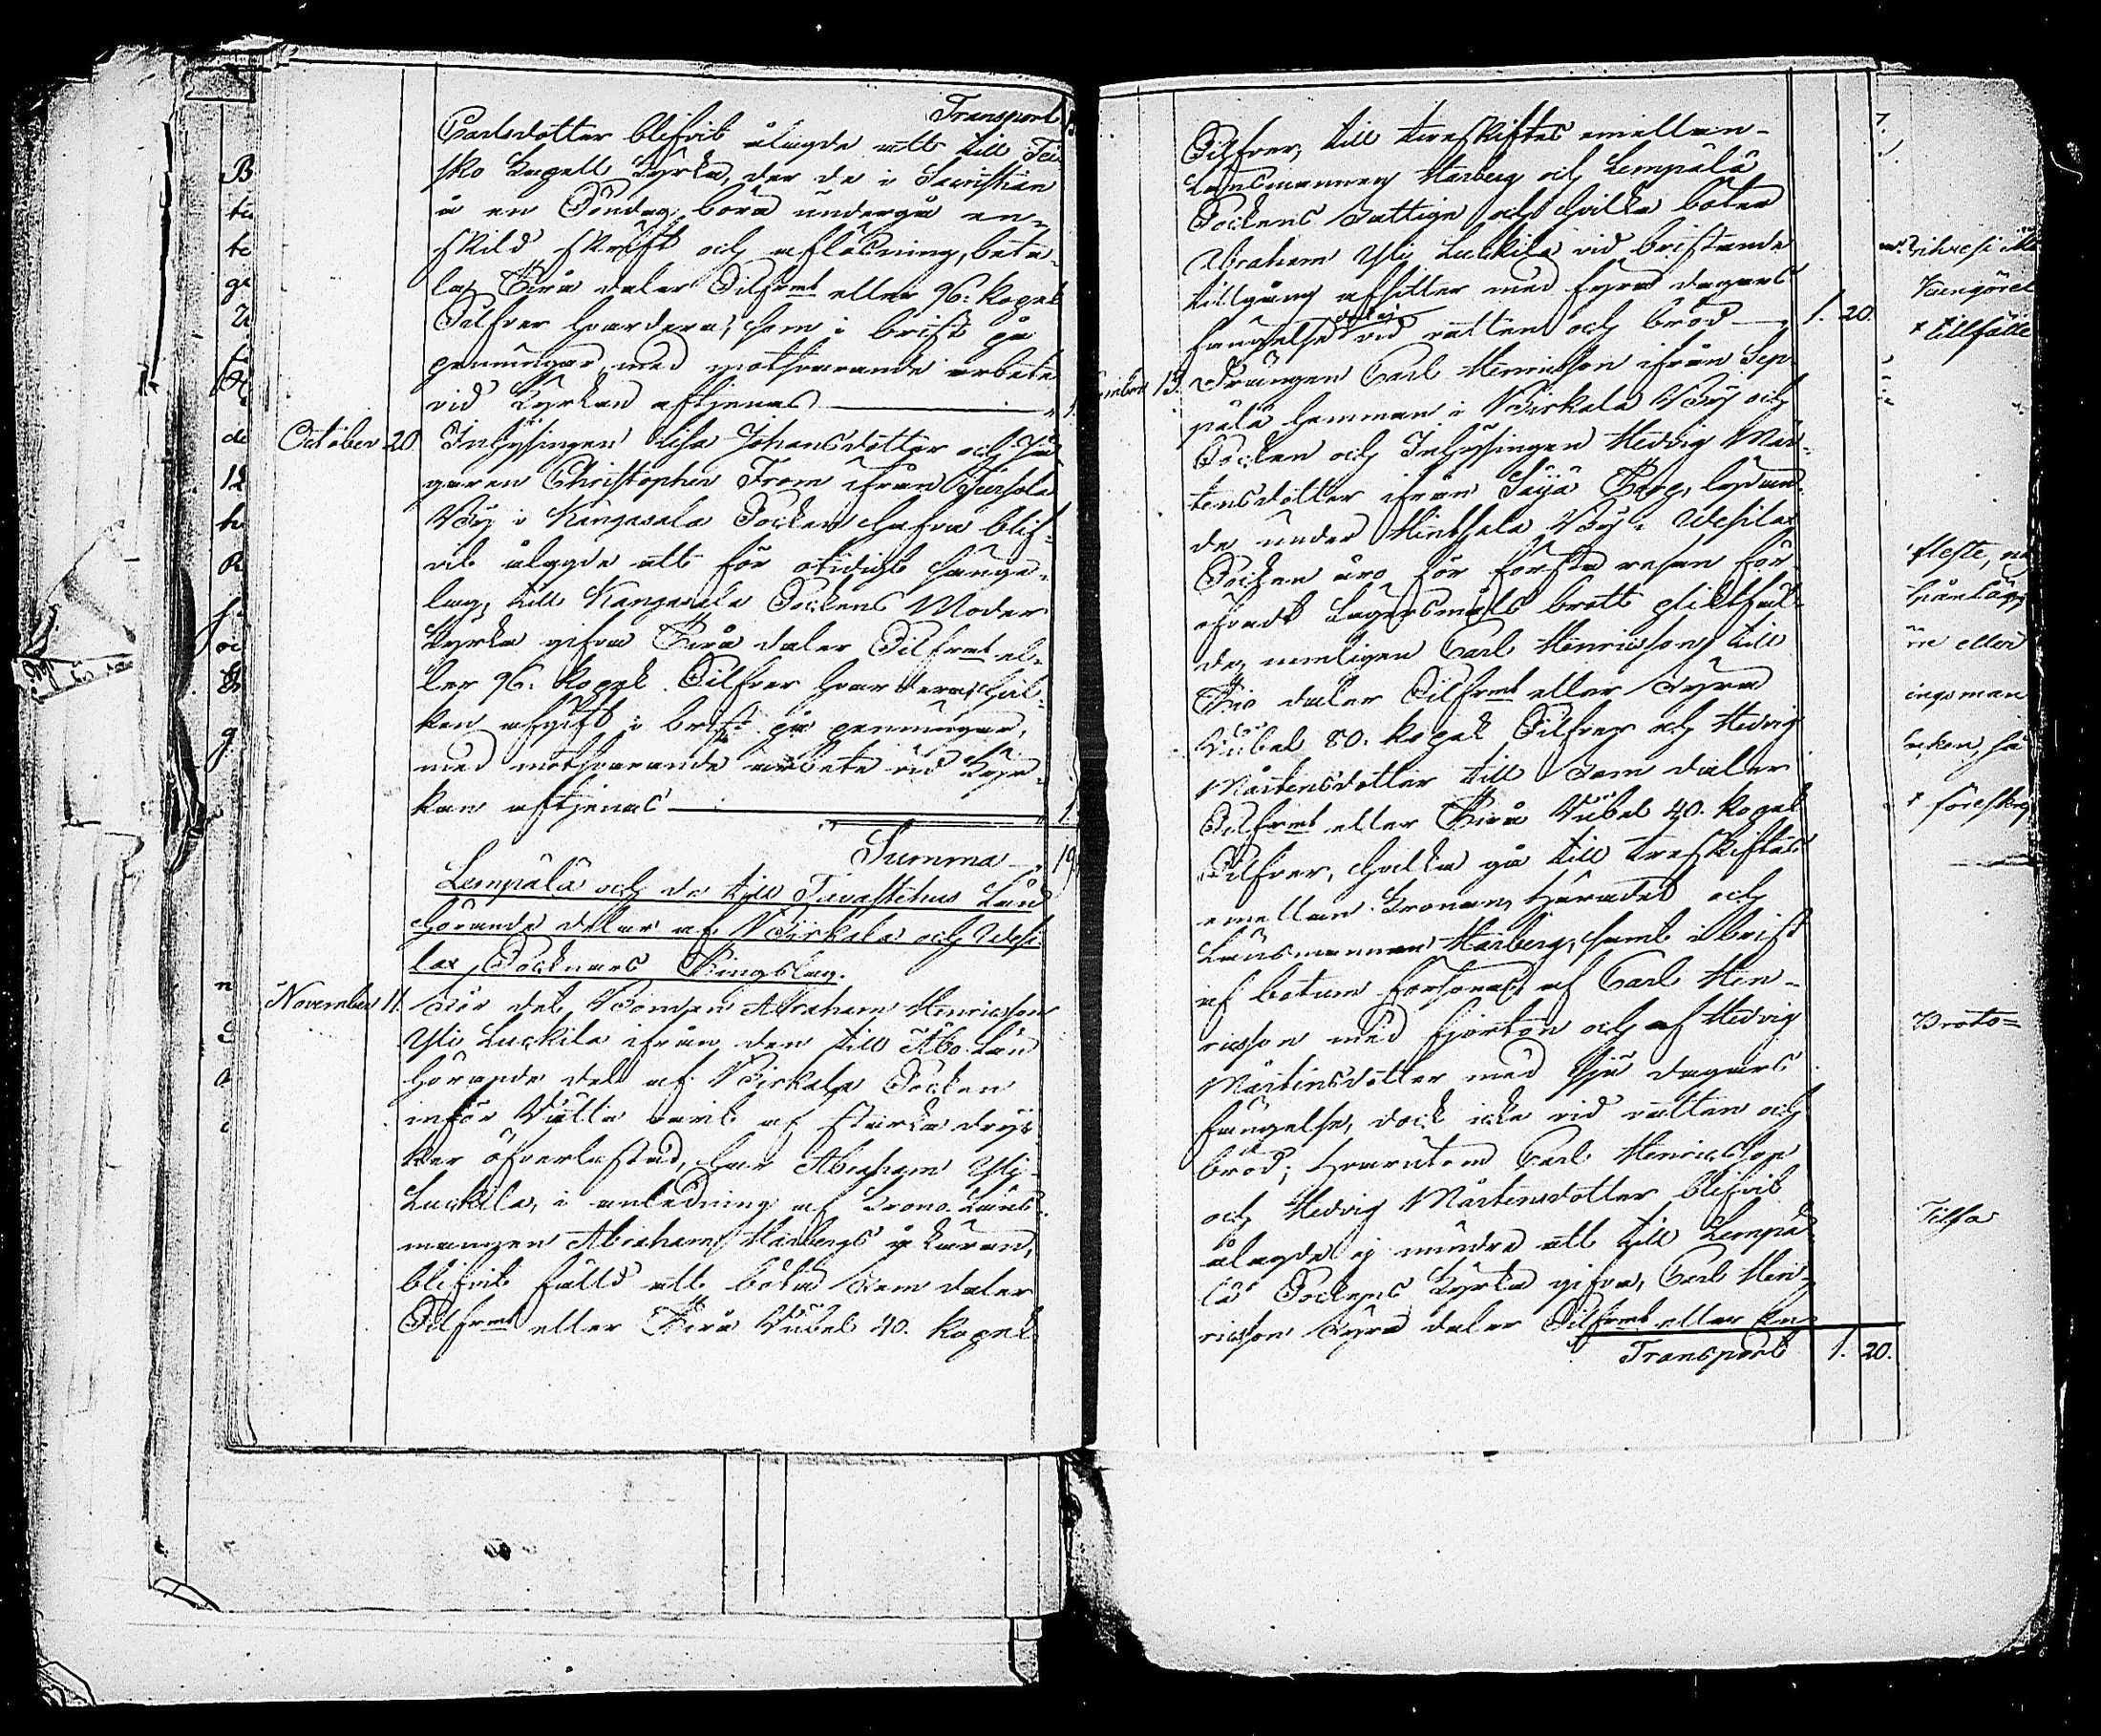 Transport
Carlsdotter blifvit ålagde att till Tei-
sko Kapell Kyrka, der de i Sacristian
å en Söndag böra undergå en-
skild skrift och aflösning, beta-
la Två daler Silfvrmt eller 96. kopek
Silfver hvardera, som i brist på
penningar med motsvarande arbete
vid Kyrkan aftjenas
October 20 Inhysingen Lisa Johansdotter och
garen Christopher From ifrån
By i Kangasala Socken hafva blif-
vit ålagde att för otidigt sänge-
lag, till Kangasala Sockens Moder
Kyrka gifva Två daler Silfvrmt el-
ler 96. kopek Silfver hvardera, hvil-
ken afgift i brist på penningar,
med motsvarande arbete vid Kyr-
kan aftjenas 1.
Summa 19
Lempälä och de till Tavastehus Län
hörande delar af Birkala och Wesi-
lax Socknars Tingslag.
November 11. För det Bonden Abraham Henricsson
Yli Luckila ifrån den till Åbo Län
hörande del af Birkala Socken
inför Rätta varit af starka dryc-
ker öfverlastad, har Abraham Yli
Luckila, i anledning af Krono Läns-
mannen Abraham Harbergs åkäran,
blifvit fälld att böta Fem daler
Silfvrmt eller Två Rubel 40. kopek
Silfver, till treskiftes emellan
Länsmannen Harberg och Lempälä
Sockens Fattige och hvilka böter
Abraham Yli Luckila vid bristande
tillgång afsitter med fyra dagars
fängelse dock ej vid vatten och bröd 1. 20.
13. Drängen Carl Henricsson ifrån Sep-
pälä hemman i Birkala By och
Socken och Inhysingen Hedvig Mår-
tensdotter ifrån Säijä Torp, lydan-
de under Hinthala By i Wesilax
Socken äro för första resan för-
öfvadt Lägersmåls brott plictfäll-
de, nemligen Carl Henricsson till
Tio daler Silfvrmt eller Fyra
Rubel 80. kopek Silfver och Hedvig
Mårtensdotter till Fem daler
Silfvrmt eller Två Rubel 40. kopek
Silfver, hvilka gå till treskiftes
emellan Kronan, Häradet och
Länsmannen Harberg, samt i brist
af botum försonas af Carl Hen-
ricsson med fjorton och af Hedvig
Mårtensdotter med sju dagars
fängelse, dock icke vid vatten och
bröd; hvarutom Carl Henricsson
och Hedvig Mårtensdotter blifvit
ålagde ej mindre att till Lempä-
lä Sockens Kyrka gifva, Carl Hen-
ricsson Fyra daler Silfvrmt eller En
Transport 1. 20.
Kungörel
tillfälle
eller
ingsman
Proto=